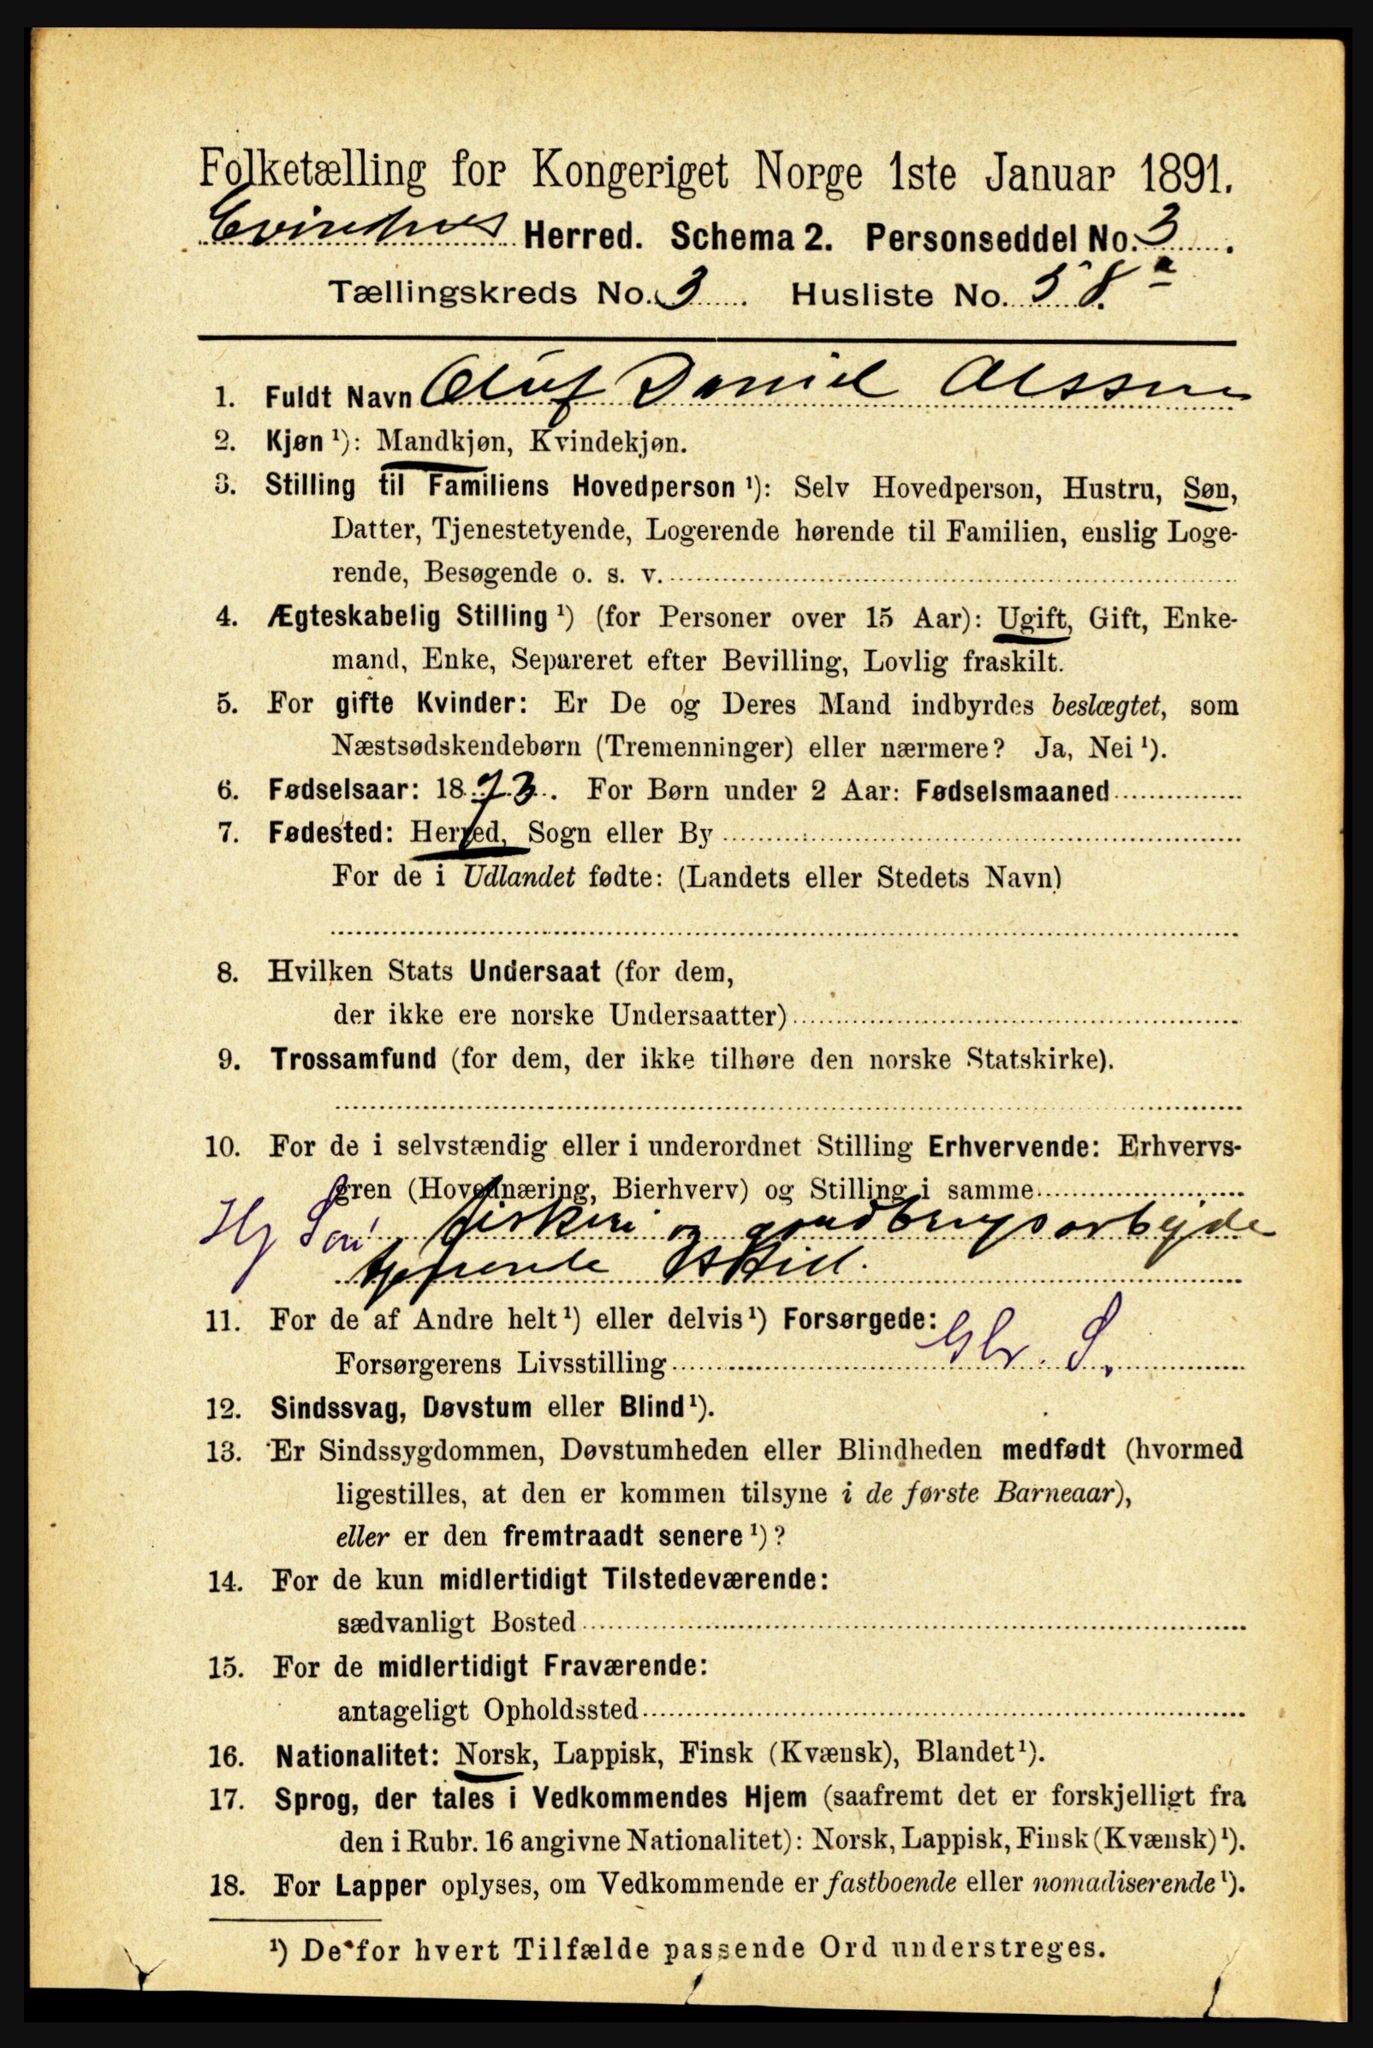 Folketælling for Kongeriget Norge 1ste Januar 1891.
Evindvig Herred. Schema 2. Personseddel No. 3.
Tællingskreds No. 3. Husliste No. 58.a
1. Fuldt Navn Oluf Daniel Olssen
2. Kjøn ¹): Mandkjøn, Kvindekjøn.
3. Stilling til Familiens Hovedperson ¹): Selv Hovedperson, Hustru, Søn,
Datter, Tjenestetyende, Logerende hørende til Familien, enslig Loge-
rende, Besøgende o. s. v.
4. Ægteskabelig Stilling ¹) (for Personer over 15 Aar): Ugift, Gift, Enke-
mand, Enke, Separeret efter Bevilling, Lovlig fraskilt.
5. For gifte Kvinder: Er De og Deres Mand indbyrdes beslægtet, som
Næstsødskendebørn (Tremenninger) eller nærmere? Ja, Nei ¹).
6. Fødselsaar: 1873. For Børn under 2 Aar: Fødselsmaaned
7. Fødested: Herred, Sogn eller By
For de i Udlandet fødte: (Landets eller Stedets Navn)
8. Hvilken Stats Undersaat (for dem,
der ikke ere norske Undersaatter)
9. Trossamfund (for dem, der ikke tilhøre den norske Statskirke).
10. For de i selvstændig eller i underordnet Stilling Erhvervende: Erhvervs-
gren (Hovednæring, Bierhverv) og Stilling i samme
Hj Søn fiskeri og gaardbrugsarbejde
tjenende
11. For de af Andre helt ¹) eller delvis ¹) Forsørgede:
Forsørgerens Livsstilling Gbr. S.
12. Sindssvag, Døvstum eller Blind ¹).
13. Er Sindssygdommen, Døvstumheden eller Blindheden medfødt (hvormed
ligestilles, at den er kommen tilsyne i de første Barneaar),
eller er den fremtraadt senere ¹)?
14. For de kun midlertidigt Tilstedeværende:
sædvanligt Bosted
15. For de midlertidigt Fraværende:
antageligt Opholdssted
16. Nationalitet: Norsk, Lappisk, Finsk (Kvænsk), Blandet ¹).
17. Sprog, der tales i Vedkommendes Hjem (saafremt det er forskjelligt fra
den i Rubr. 16 angivne Nationalitet): Norsk, Lappisk, Finsk (Kvænsk) ¹).
18. For Lapper oplyses, om Vedkommende er fastboende eller nomadiserende ¹).
¹) De for hvert Tilfælde passende Ord understreges.